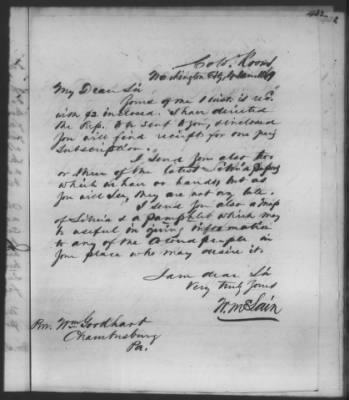 Col. Rooms
Washington City,
My Dear Sir
Yours of the inst. is rec.
with $2 inclosed. I have directed
the Rep. to be sent to you, inclosed
you will find receipt for one years
subscription.
I send you also two
or three of the latest Liberia papers
which we have on hand, but as
you will see, they are not very late.
I send you also a map
of Liberia & a pamphlet which may
be useful in giving information
to any of the colored people in
your place who may desire it.
I am dear Sir
Very truly yours
W. McLain
Rev. Wm Goodhart
Chambersburg
Pa.